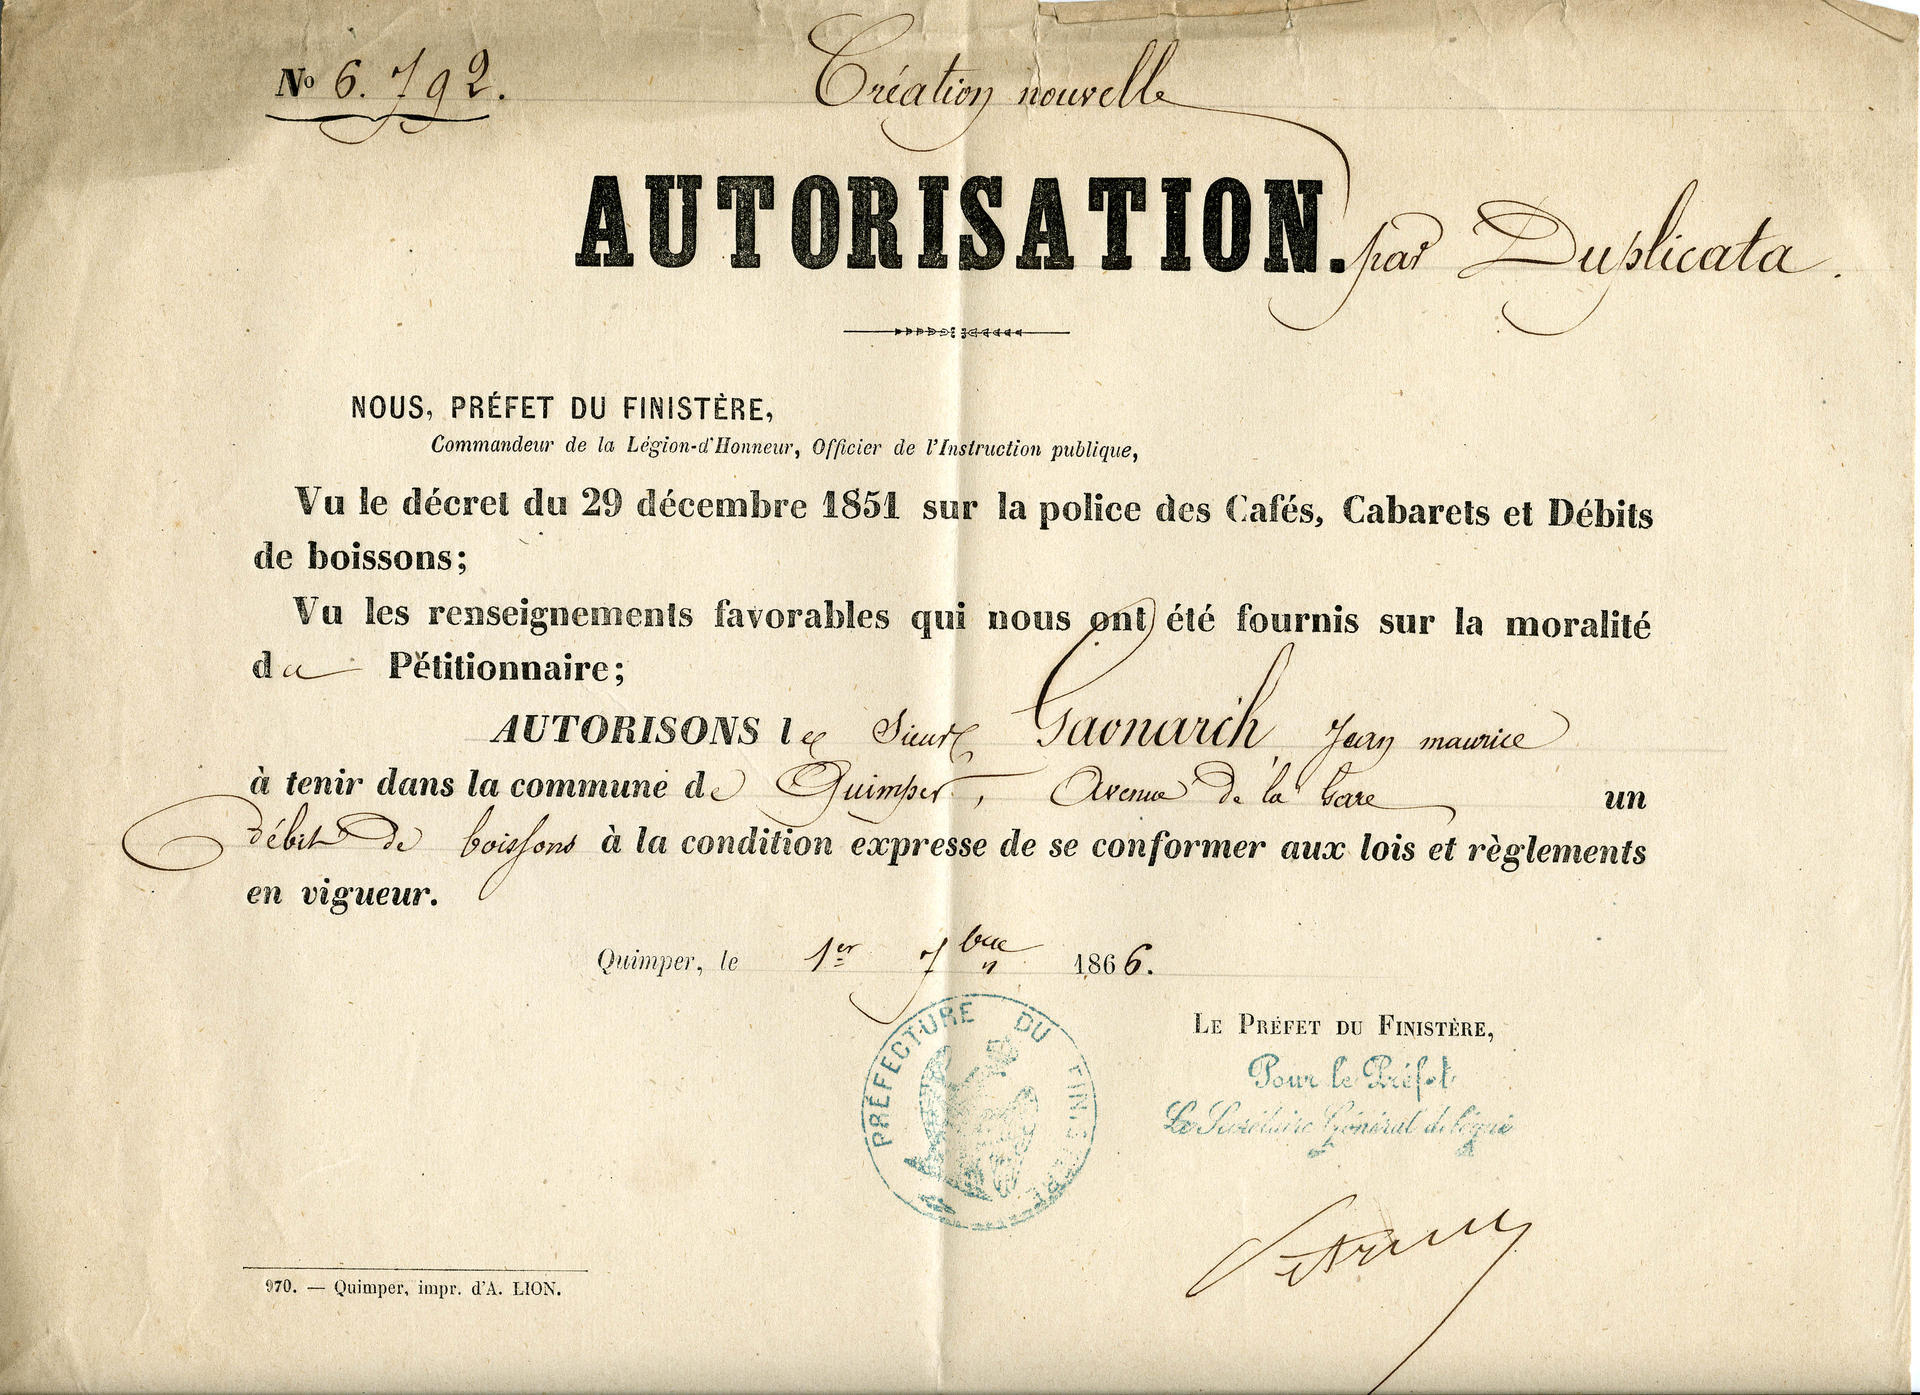 No 6.792.
Création nouvelle
AUTORISATION. par Duplicata.
NOUS, PRÉFET DU FINISTÈRE,
Commandeur de la Légion-d'Honneur, Officier de l'Instruction publique,
Vu le décret du 29 décembre 1851 sur la police des Cafés, Cabarets et Débits
de boissons;
Vu les renseignements favorables qui nous ont été fournis sur la moralité
du Pétitionnaire;
AUTORISONS le Sieur Gaonarch Jean maurice
à tenir dans la commune de Quimper, Avenue de la Gare un
débit de boissons à la condition expresse de se conformer aux lois et règlements
en vigueur.
Quimper, le 1er 7bre 1866.
PRÉFECTURE DU FINISTÈRE
LE PRÉFET DU FINISTÈRE,
Pour le Préfet
Le Secrétaire Général délégué
970. — Quimper, impr. d'A. LION.